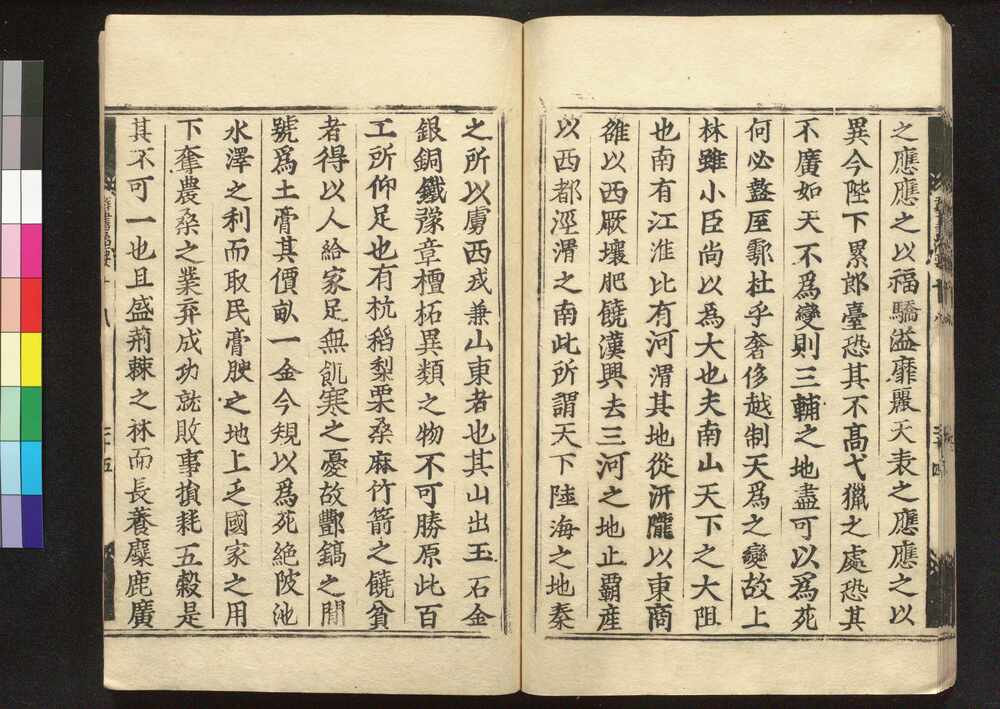 之應應之以福驕溢靡麗天表之應應之以
異今陛下累郎臺恐其不高弋獵之處恐其
不廣如天不爲變則三輔之地盡可以爲苑
何必盩厔鄠杜乎奢侈越制天爲之變故上
林雖小臣尚以爲大也夫南山天下之大阻
也南有江淮比有河渭其地從汧隴以東商
雒以西厥壤肥饒漢興去三河之地止霸產
以西都涇渭之南此所謂天下陸海之地秦
之所以虜西戎兼山東者也其山出玉石金
銀銅鐵豫章檀柘異類之物不可勝原此百
工所仰足也有杭稻梨栗桑麻竹箭之饒貧
者得以人給家足無飢寒之憂故酆鎬之間
號爲土膏其價畝一金今規以爲苑絶陂池
水澤之利而取民膏腴之地上乏國家之用
下奪農桑之業弃成功就敗事損耗五穀是
其不可一也且盛荊棘之林而長養麋鹿廣